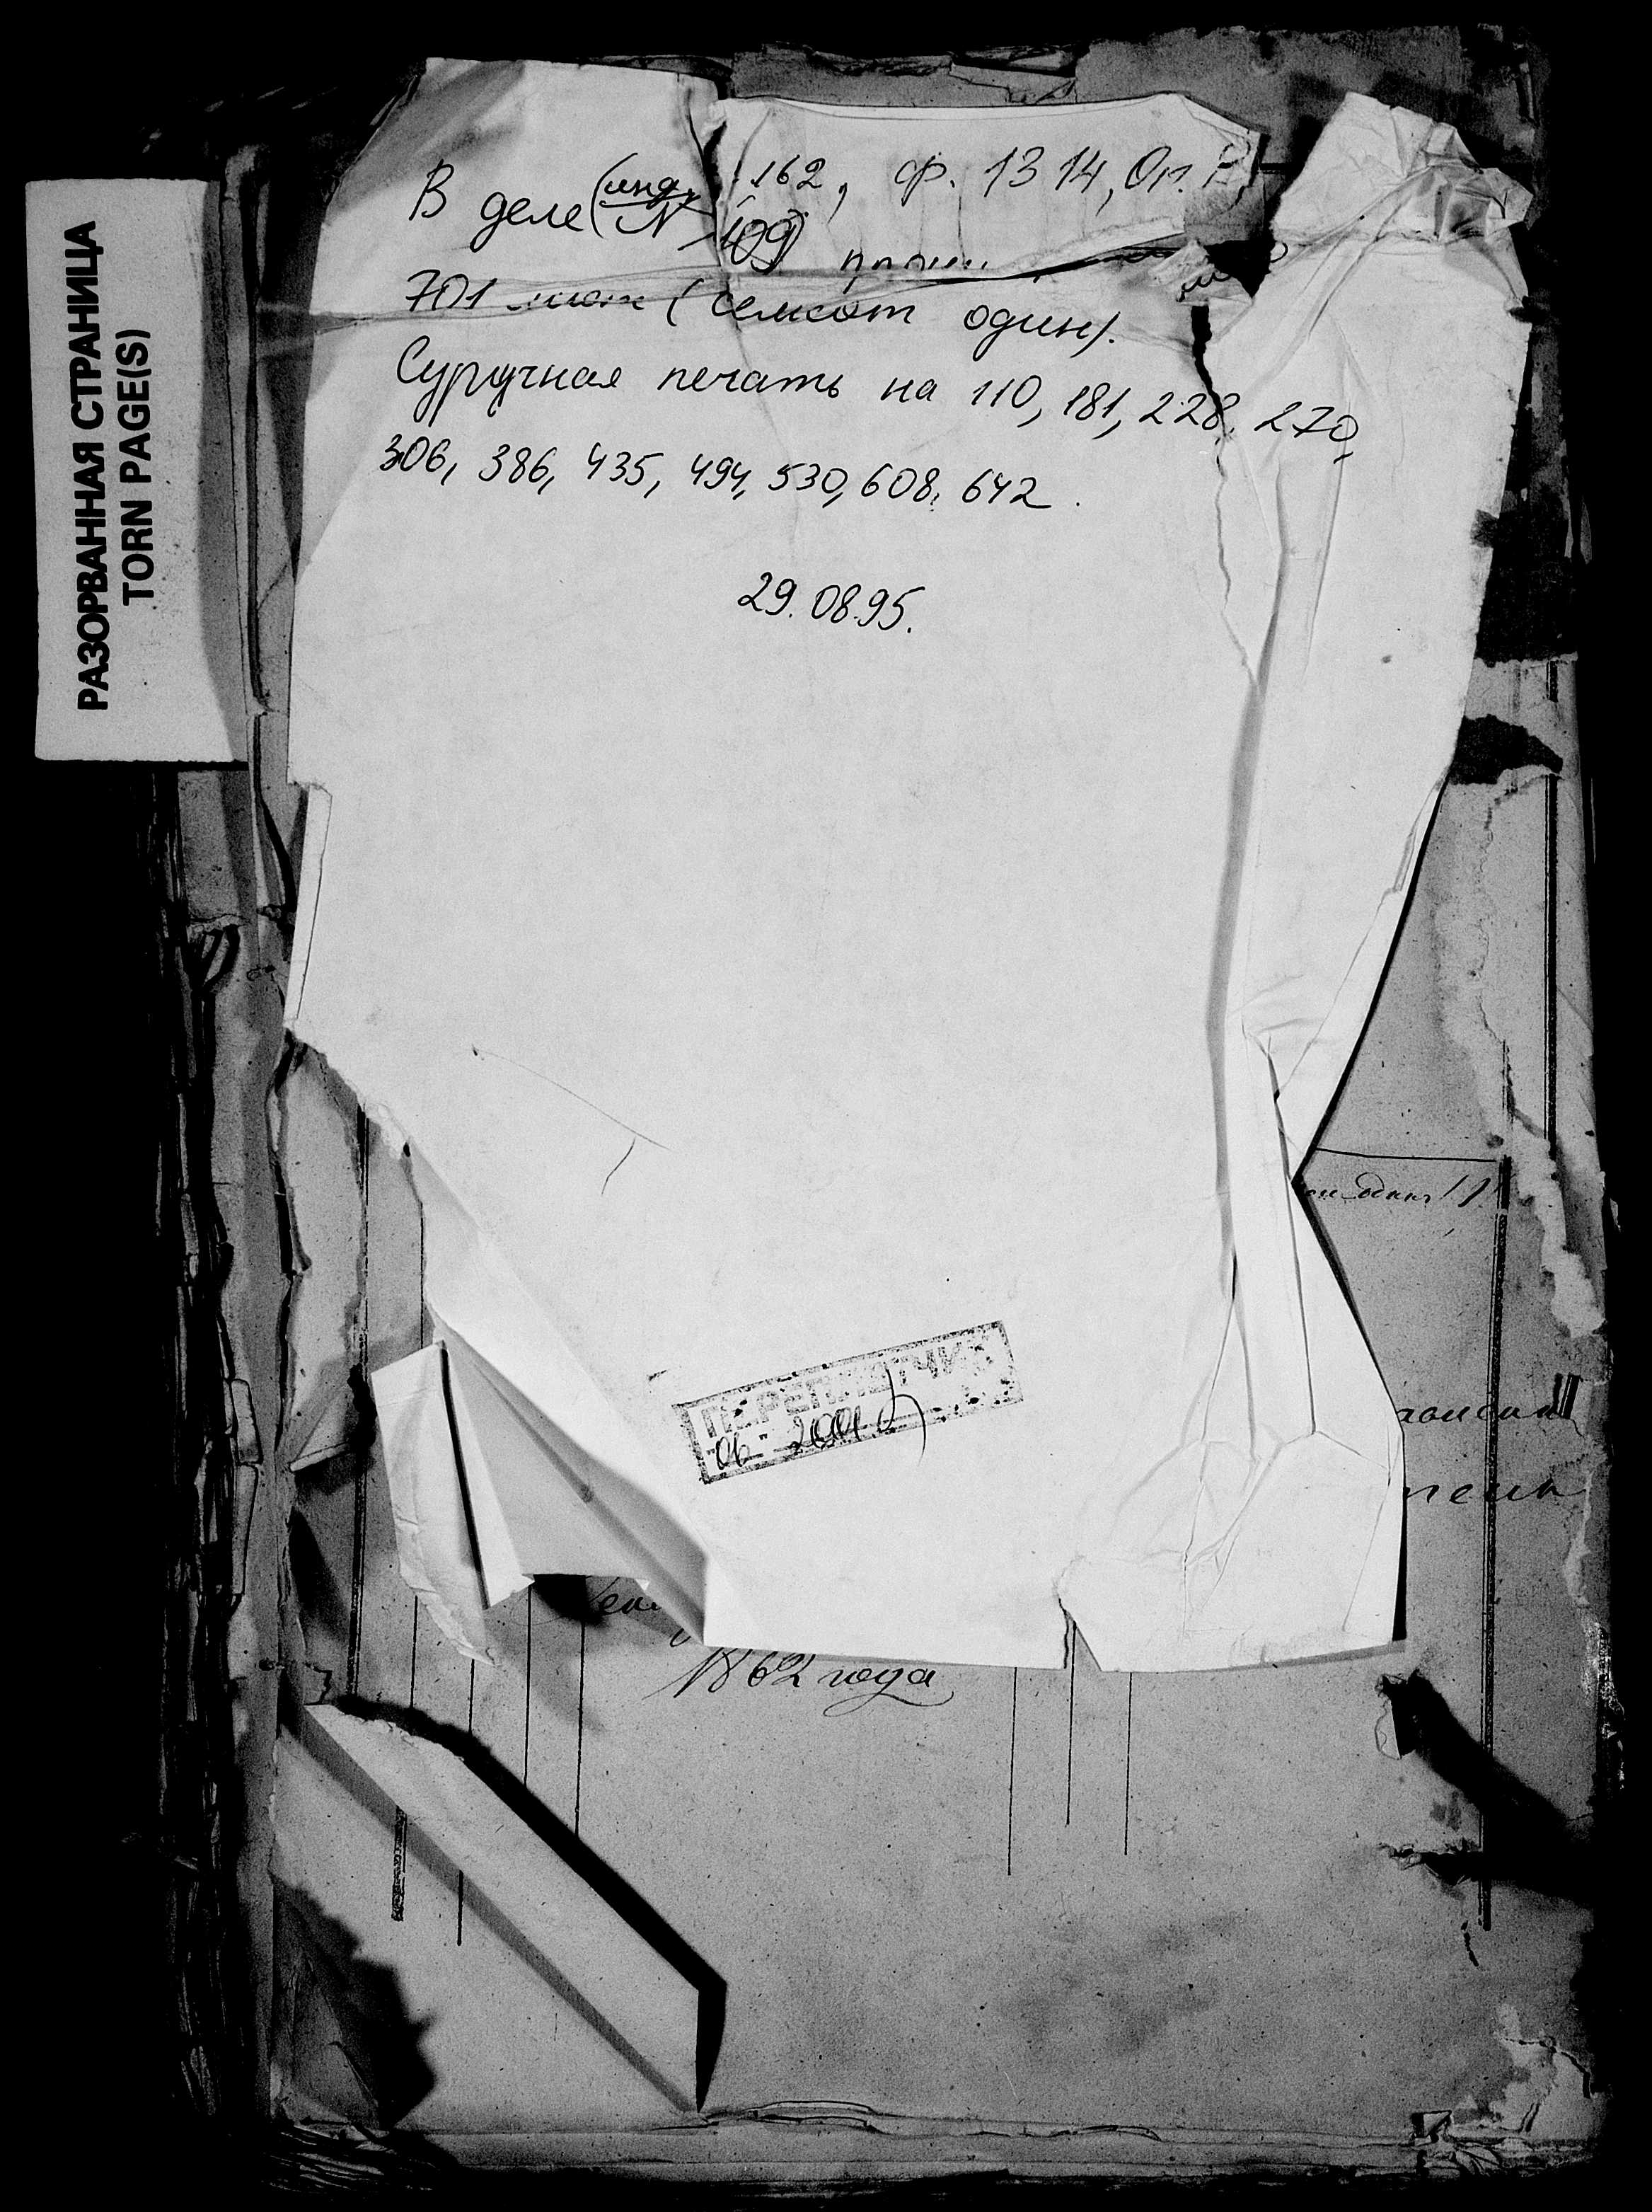 РАЗОРВАННАЯ СТРАНИЦА
TORN PAGE(S)
В деле (инд. 162, Ф. 1314, Оп.
№ 109)
701 лист (семсот один).
Сургучная печать на 110, 181, 228, 270,
306, 386, 435, 494, 530, 608, 642.
29.08.95.
один
ПЕРЕПЛЕТЧИК
06 2001
1862 года